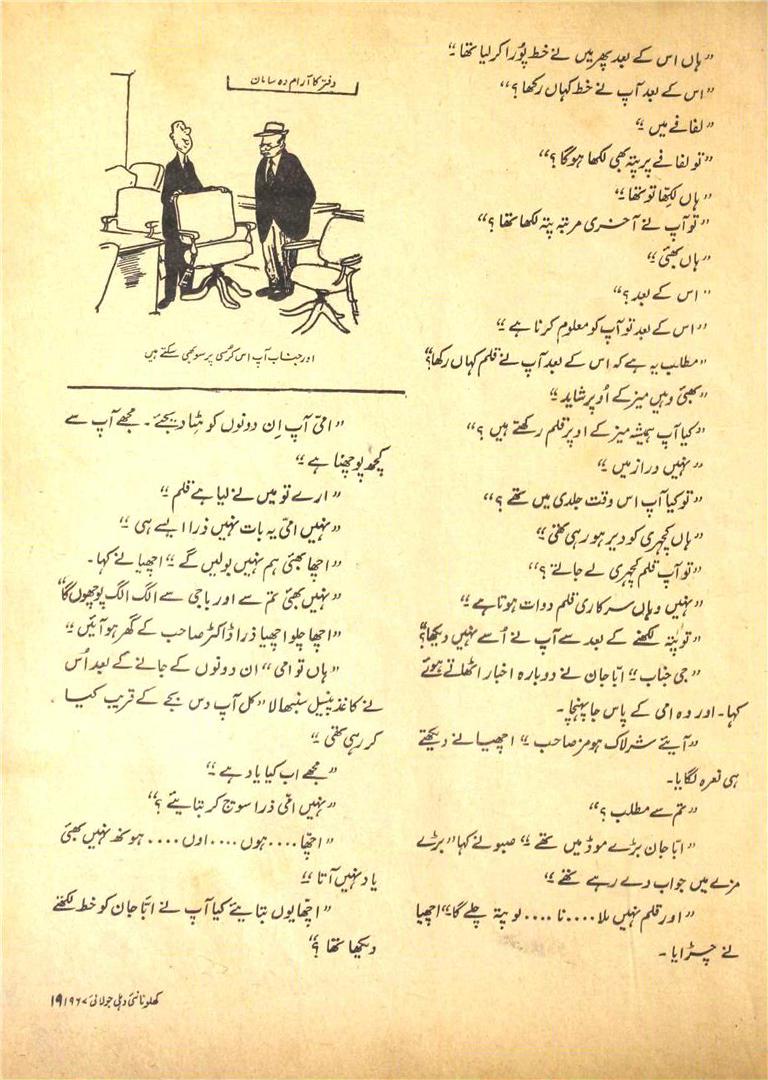 ”ہاں اس کے بعد پھر میں نے خط پُورا کر لیا تھا۔“
”اس کے بعد آپ نے خط کہاں رکھا؟“
”لفافے میں۔“
”تو لفافے پر پتہ بھی لکھا ہوگا؟“
”ہاں لکھّا تو تھا۔“
”تو آپ نے آخری مرتبہ پتہ لکھا تھا؟“
”ہاں بھئی۔“
”اس کے بعد؟“
”اس کے بعد تو آپ کو معلوم کرنا ہے۔“
”مطلب یہ ہے کہ اس کے بعد آپ نے قلم کہاں رکھا؟“
”بھئی وہیں میز کے اُوپر شاید۔“
”کیا آپ ہمیشہ میز کے اوپر قلم رکھتے ہیں؟“
”نہیں دراز میں۔“
”تو کیا آپ اس وقت جلدی میں تھے؟“
”ہاں کچہری کو دیر ہو رہی تھی۔“
”تو آپ قلم کچہری لے جاتے؟“
”نہیں وہاں سرکاری قلم دوات ہوتا ہے۔“
”تو پتہ لکھنے کے بعد سے آپ نے اُسے نہیں دیکھا؟“
”جی جناب۔“ ابّا جان نے دوبارہ اخبار اٹھاتے ہوئے
کہا۔ اور وہ امی کے پاس جا پہنچا۔
”آیئے شرلاک ہومز صاحب۔“ اچھیا نے دیکھتے
ہی نعرہ لگایا۔
”تم سے مطلب؟“
”ابّا جان بڑے موڈ میں تھے۔“ صبو نے کہا ”بڑے
مزے میں جواب دے رہے تھے۔“
”اور قلم نہیں ملا....نا ....تو پتہ چلے گا۔“ اچھیا
نے چڑایا۔
دفتر کا آرام دہ سامان
اور جناب آپ اس کرسی پر سو بھی سکتے ہیں
”امّی آپ اِن دونوں کو ہٹا دیجئے۔ مجھے آپ سے
کچھ پوچھنا ہے۔“
”ارے تو میں نے لیا ہے قلم۔“
”نہیں امّی یہ بات نہیں ذرا ایسے ہی۔“
”اچھا بھئی ہم نہیں بولیں گے۔“ اچھیا نے کہا۔
”نہیں بھئی تم سے اور باجی سے الگ الگ پوچھوں گا“
”اچھا چلو اچھیا ذرا ڈاکٹر صاحب کے گھر ہو آئیں۔“
”ہاں تو امی“ ان دونوں کے جانے کے بعد اُس
نے کاغذ پنسل سنبھالا ”کل آپ دس بجے کے قریب کیا
کر رہی تھی۔“
”مجھے اب کیا یاد ہے۔“
”نہیں امّی ذرا سوچ کر بتایئے؟“
”اچّھا....ہوں....اوں.... ہونھ نہیں بھئی
یاد نہیں آتا۔“
”اچّھا یوں بتایئے کیا آپ نے ابّا جان کو خط لکھتے
دیکھا تھا؟“
کھلونا نئی دہلی جولائی ۱۹۶۷ ۱۹